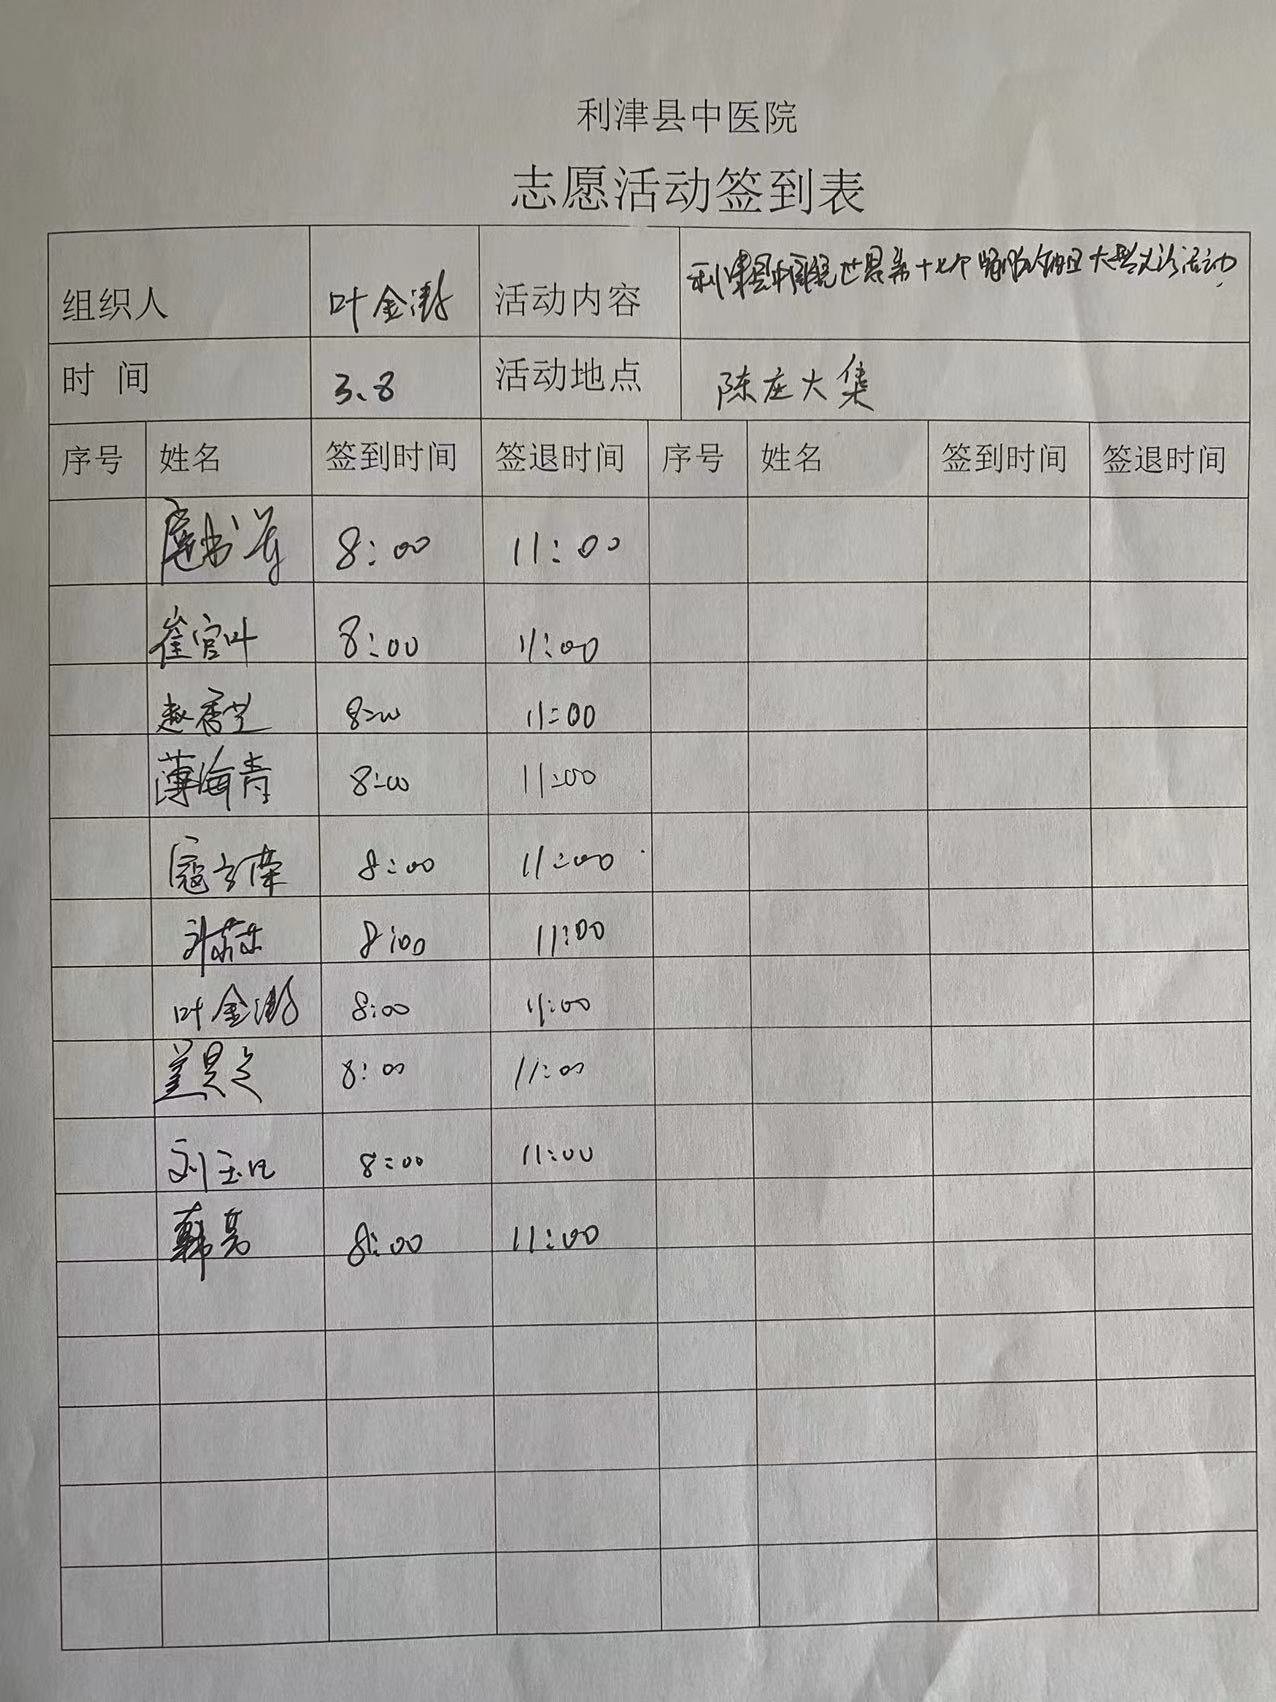 利津县中医院
志愿活动签到表
组织人 叶金 活动内容 利津县中医院世界第十七个 大型义诊活动
时 间 3.8 活动地点 陈庄大集
序号 姓名 签到时间 签退时间 序号 姓名 签到时间 签退时间
8:00 11:00
崔官叶 8:00 11:00
赵香芝 8:00 11:00
薄海青 8:00 11:00
寇 荣 8:00 11:00
8:00 11:00
叶金 8:00 11:00
8:00 11:00
刘玉 8:00 11:00
韩亮 8:00 11:00